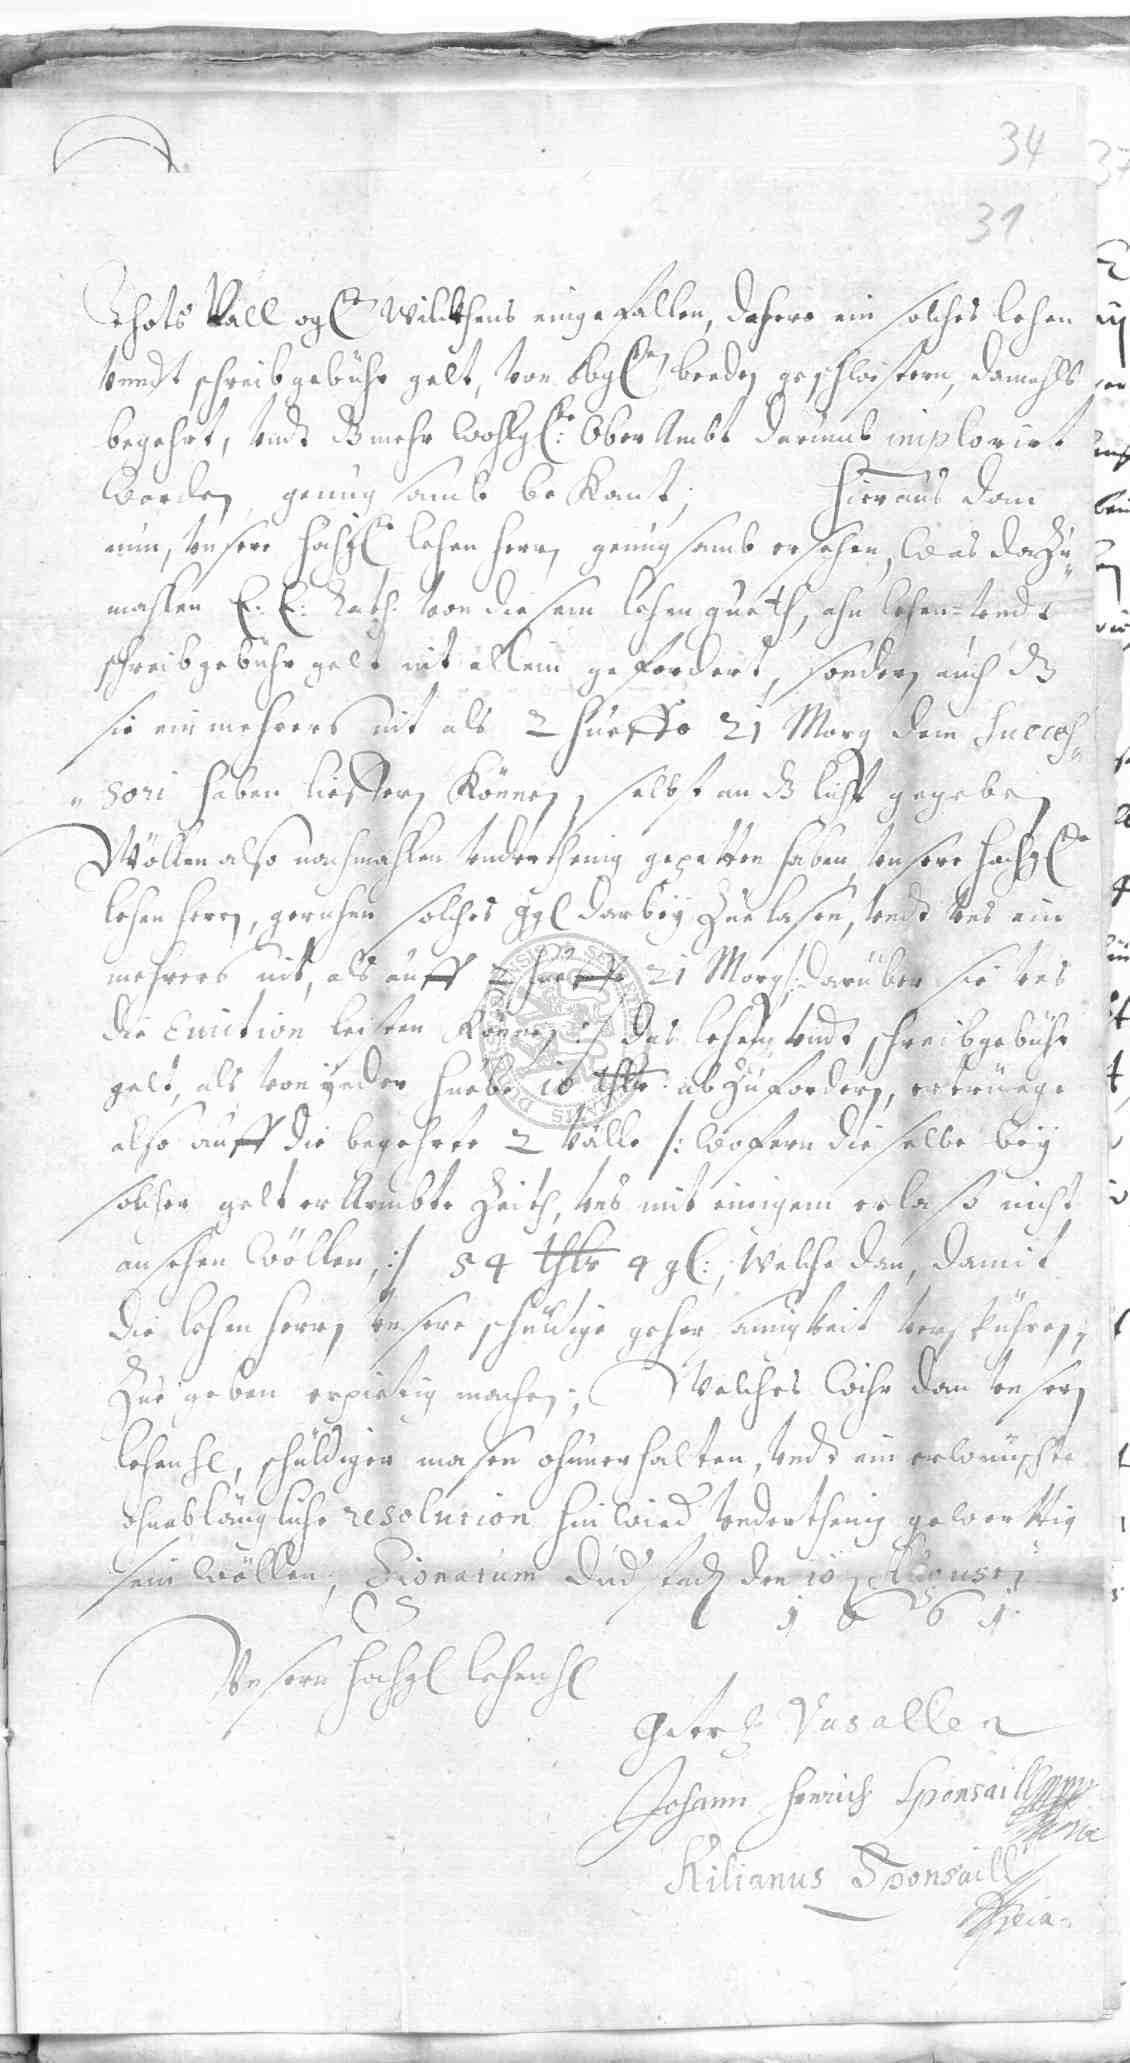 34
31
Thots Vall ogl. Wilckhens eingefallen, dahero ein solches lehen
vnndt schreibgebühr gelt, von obgl. beeden geschwistern, damahls
begehrt, vndt dz mehr wohlgl: Ober Ambt darumb implorirt
worden, genugsamb bekant; Hieraus dan
nun, vnsere hochgl. lehen herrn genugsamb ersehen, was dazu
massen E. E. Rath. von diesem lehengueth, ahn lehen- vndt
schreibgebühr gelt nit allein gefordert, sondern auch dz
sie ein mehrers nit als 2 Hueffe 21 Morg dem Succes-
sori haben liefern können, selbst an dz licht gegeben
Wöllen also nochmahlen vnderthenig gepetten haben, vnsere hochgl.
lehen herrn, geruhen solches ggl darbey zue lasen, vndt vns ein
mehrers nit, als auff 2 Hueffe 21 Morg /: darüber sie vns
die Eviction leisten können :/ das lehen vndt schreibgebühr
gelt, als von yeder Huebe 10 thlr abzufordern, ertrüege
also auff die begehrte 2 Välle /: wofern dieselbe bey
solcher gelt er Armbte Zeith, vns mit einigem erlass nicht
ansehen wöllen, :/ 54 thlr 4 gl:, welche dan, damit
die lehen herrn vnsere schuldige gehorsamigkeit verspühren,
Zue geben erpietig machen; Welches wihr dan vnsern
lehenhl, schuldiger masen ohnverhalten, vndt ein erwünschte
ohnablängliche resolution hinwied vnderthenig gewerttig
sein wöllen, Signatum Dudstadt den 10 Augusti
1661
Vnsern hochgl lehenhl
Getrew Vasallen
Johann Henrich Sponsaill
Kilianus Sponsaill